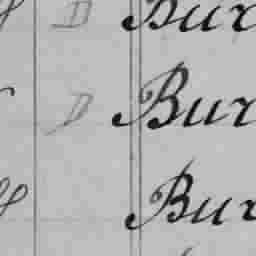 D Bur
D Bur
Bur